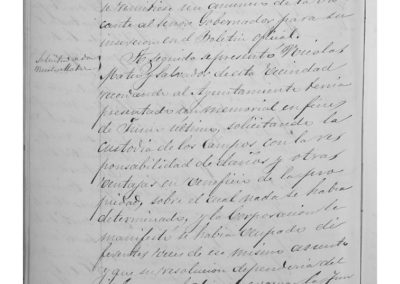 se remitiese un anuncio de la va
cante al Señor Gobernador para su
insercion en el Boletin oficial.
Solicitud de
Nicolas Matin
En seguida se presentó Nicolas
Matin y Salvador de esta Vecindad
recordando al Ayuntamiento tenia
presentado un memorial en fines
de Junio último, solicitando la
custodia de los Campos con la res
ponsabilidad de daños y otras
ventajas en beneficio de la pro
piedad, sobre el cual nada se habia
determinado, y la Corporacion le
manifestó se habia ocupado di
ferentes veces de su mismo asunto
y que su resolucion dependeria del